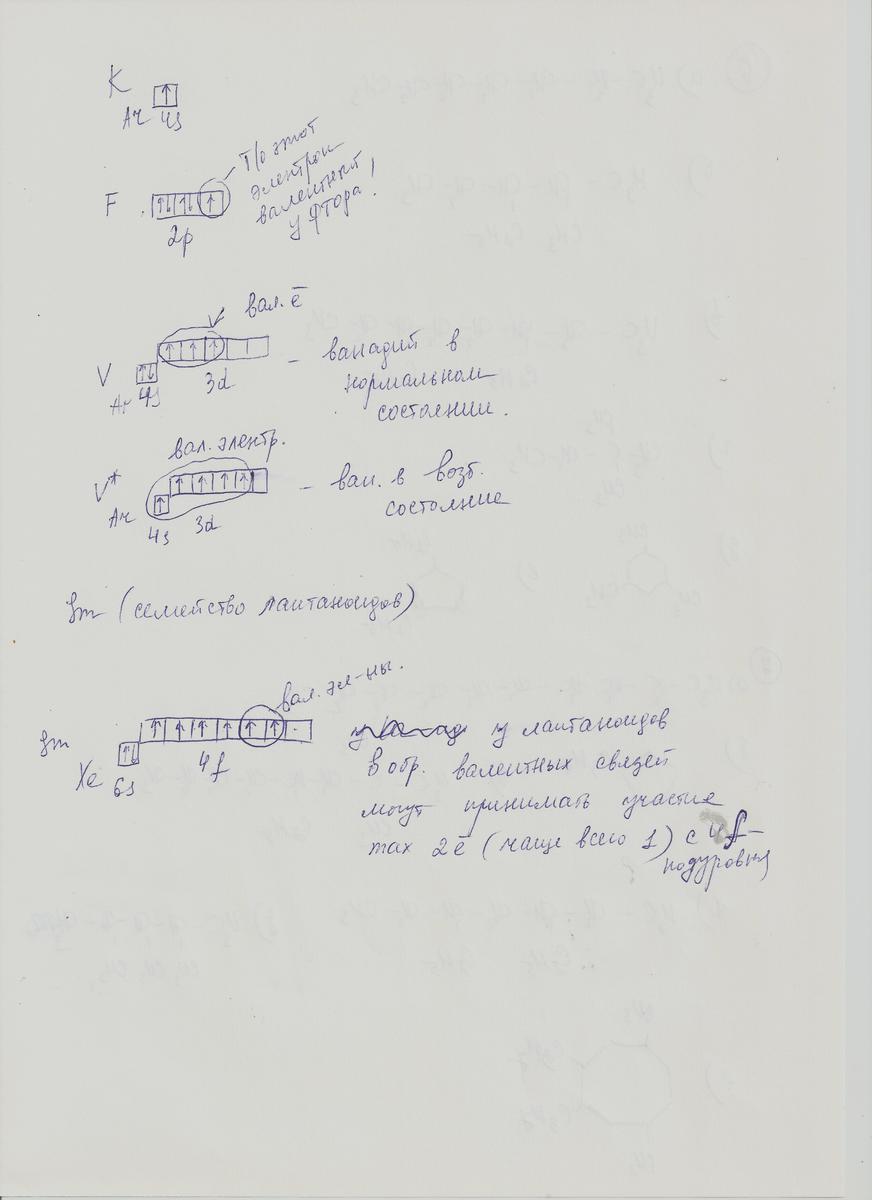 К
↑
Ar 4s
Т/о этот
электрон
валентный
у фтора!
F ↑↓ ↑↓ ↑
2p
вал. ē
V ↑↓ ↑ ↑ ↑
Ar 4s 3d
– ванадий в
нормальном
состоянии.
вал. электр.
V* ↑ ↑ ↑ ↑ ↑
Ar 4s 3d
– ван. в возб.
состояние
Sm (семейство лантаноидов)
вал. эл-ны.
Sm ↑↓ ↑ ↑ ↑ ↑ ↑ ↑
Xe 6s 4f
у лантаноидов
в обр. валентных связей
могут принимать участие
max 2ē (чаще всего 1) с 4f–
подуровня